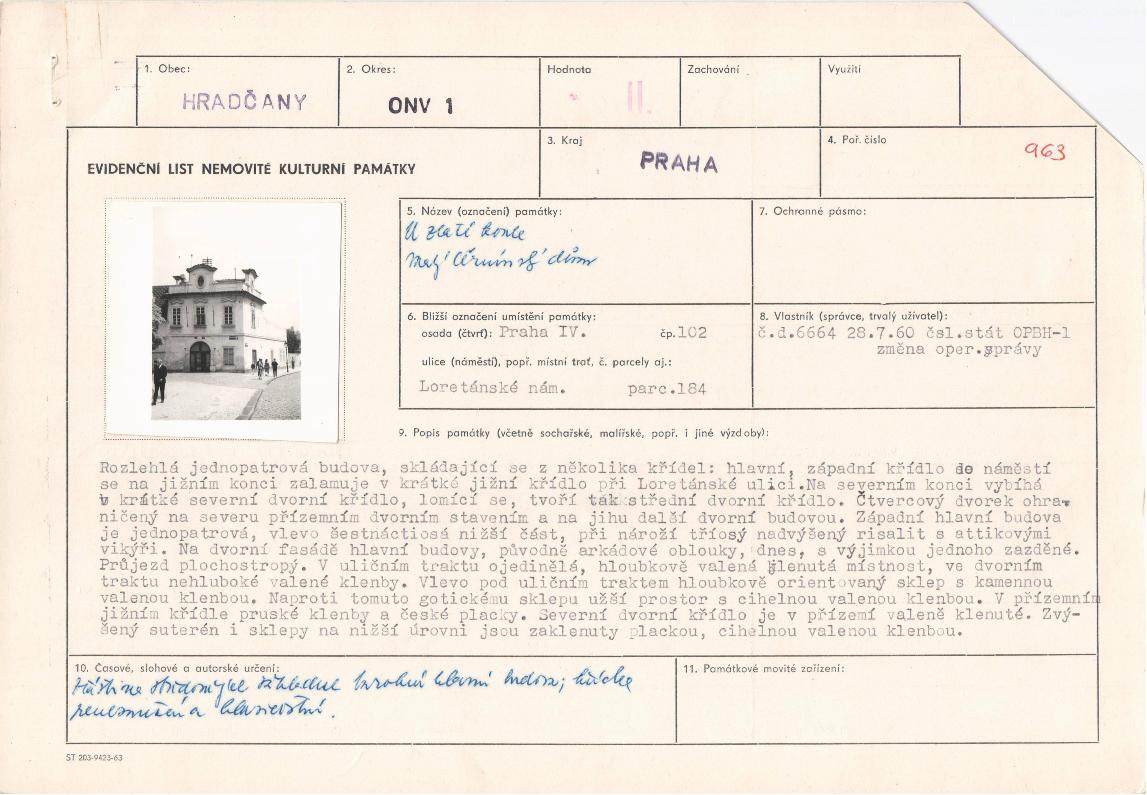 1. Obec:
HRADČANY
2. Okres:
ONV 1
Hodnota
II.
Zachování
Využití
EVIDENČNÍ LIST NEMOVITÉ KULTURNÍ PAMÁTKY
3. Kraj
PRAHA
4. Poř. číslo
963
5. Název (označení) památky:
U zlaté koule
Malý Černínský dům
7. Ochranné pásmo:
6. Bližší označení umístění památky:
osada (čtvrť): Praha IV. čp.102
ulice (náměstí), popř. místní trať, č. parcely aj.:
Loretánské nám. parc.184
8. Vlastník (správce, trvalý uživatel):
č.d.6664 28.7.60 čsl.stát OPBH-1
změna oper.správy
9. Popis památky (včetně sochařské, malířské, popř. i jiné výzdoby):
Rozlehlá jednopatrová budova, skládající se z několika křídel: hlavní, západní křídlo do náměstí
se na jižním konci zalamuje v krátké jižní křídlo při Loretánské ulici.Na severním konci vybíhá
v krátké severní dvorní křídlo, lomící se, tvoří tak střední dvorní křídlo. Čtvercový dvorek ohra-
ničený na severu přízemním dvorním stavením a na jihu další dvorní budovou. Západní hlavní budova
je jednopatrová, vlevo šestnáctiosá nižší část, při nároží tříosý nadvýšený risalit s attikovými
vikýři. Na dvorní fasádě hlavní budovy, původně arkádové oblouky, dnes, s výjimkou jednoho zazděné.
Průjezd plochostropý. V uličním traktu ojedinělá, hloubkově valená klenutá místnost, ve dvorním
traktu nehluboké valené klenby. Vlevo pod uličním traktem hloubkově orientovaný sklep s kamennou
valenou klenbou. Naproti tomuto gotickému sklepu užší prostor s cihelnou valenou klenbou. V přízemním
jižním křídle pruské klenby a české placky. Severní dvorní křídlo je v přízemí valeně klenuté. Zvý-
šený suterén i sklepy na nižší úrovni jsou zaklenuty plackou, cihelnou valenou klenbou.
10. Časové, slohové a autorské určení:
hlavní
a
11. Památkové movité zařízení:
ST 203-9423-63